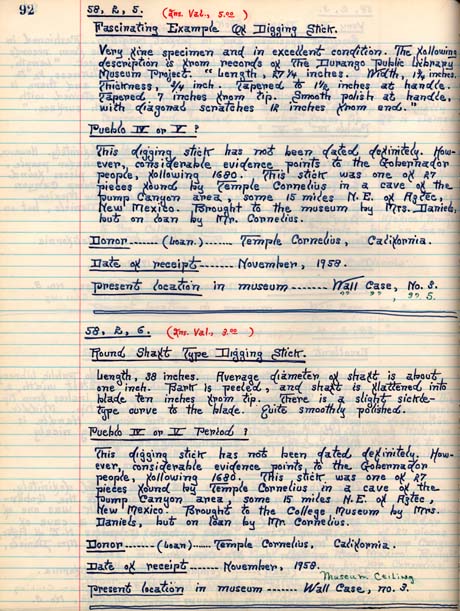 92
58, 2, 5. (Ins. Val., 5.00)
Fascinating Example Of Digging Stick.
Very fine specimen and in excellent condition. The following
description is from records of The Durango Public Library
Museum Project. "Length, 27 1/4 inches. Width, 1 3/4 inches.
Thickness, 3/4 inch. Tapered to 1 1/2 inches at handle.
Tapered 7 inches from tip. Smooth polish at handle,
with diagonal scratches 12 inches from end."
Pueblo IV or V ?
This digging stick has not been dated definitely. How-
ever, considerable evidence points to the Gobernador
people, following 1680. This stick was one of 27
pieces found by Temple Cornelius in a cave of the
Pump Canyon area, some 15 miles N.E. of Aztec,
New Mexico. Brought to the museum by Mrs. Daniels,
but on loan by Mr. Cornelius.
Donor ------- (Loan) ------ Temple Cornelius, California.
Date of receipt ------- November, 1958.
Present location in museum ------- Wall Case, No. 3.
" " , " 5.
58, 2, 6. (Ins. Val., 3.00)
Round Shaft Type Digging Stick.
Length, 38 inches. Average diameter of shaft is about
one inch. Bark is peeled, and shaft is flattened into
blade ten inches from tip. There is a slight sickle-
type curve to the blade. Quite smoothly polished.
Pueblo IV or V Period ?
This digging stick has not been dated definitely. How-
ever, considerable evidence points to the Gobernador
people, following 1680. This stick was one of 27
pieces found by Temple Cornelius in a cave of the
Pump Canyon area, some 15 miles N.E. of Aztec,
New Mexico. Brought to the College Museum by Mrs.
Daniels, but on loan by Mr. Cornelius.
Donor ------- (Loan) ------ Temple Cornelius, California.
Date of receipt ------- November, 1958.
Museum Ceiling
Present location in museum ------- Wall Case, no. 3.